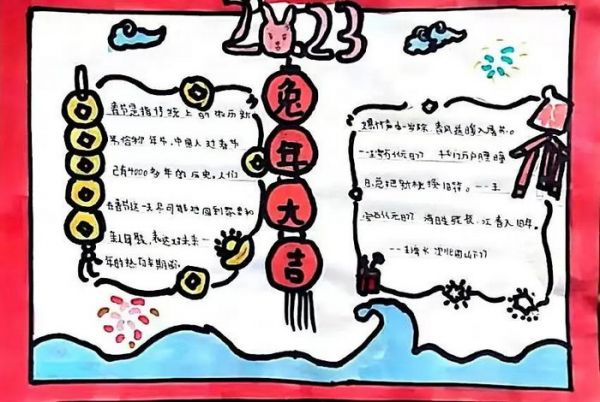 2023
兔年大吉
春节是指传统上的农历新
年俗称年节,中国人过春节
已有4000多年的历史。人们
在春节这一天尽可能地回到家里和
亲人团聚,表达对未来一
年的热切期盼。
爆竹声中一岁除,春风送暖入屠苏。
——王安石《元日》 千门万户曈曈
日,总把新桃换旧符。——王
安石《元日》 海日生残夜,江春入旧年。
——王湾《次北固山下》